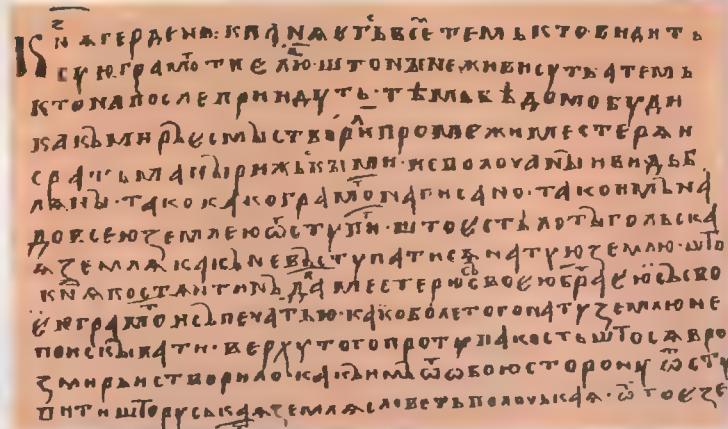 КНѦ ГЕРДЕНЬ· КЛАНѦЕТЬ С ВСѢ ТЕМЬ КТО ВИДИТЬ
СУЮ ГРАМОТ ТИЕ ЛЮ· ШТО НЪІНЕ ЖИВИ СУТЬ А ТЕМЬ
КТО НАПОСЛЕ ПРИИДУТЬ· ТѢМЬ ВѢДОМО БУДИ
КАКЪ МИРЪ ЕСМЫ СТВОРИЛИ ПРОМЕЖИ МЕСТЕРѦ И
С РАТЬМАНЪІ РИЖЬСКЪІМИ· И С ПОЛОЧАНЪІ И ВИДЬБ
ЛѦНЪІ· ТАКО КАКО ГРАМОТ НАПИСАНО· ТАКО ИМЪ НА
ДО ВСЕЮ ЗЕМЛЕЮ ѾСТУПИТ· ШТО ЕСТЬ ЛОТЪІГОЛЬСКА
Ѧ ЗЕМЛѦ КАКЪ НЕ ВЪСТУПАТИСѦ НА ТУЮ ЗЕМЛЮ· ШТО
КНѦ КОСТАНТИНЪ ДАЛ МЕСТЕРЮ СЪ СВОЕЮ БРАТЕЮ СЪ СВО
ЕЮ ГРАМОТ И СЪ ПЕЧАТЬЮ· КАКО БОЛЕ ТОГО НА ТУ ЗЕМЛЮ НЕ
ПОИСКЪІВАТИ· ВЕРХУ ТОГО ПРО ТУ ПАКОСТЬ ШТО СѦ В РО
ЗМИРЬИ СТВОРИЛО· КАКЪ ИМЪ Ѿ ОБОЮ СТОРОНУ ѾСТУ
ПИТИ ШТО РУСЬКАѦ ЗЕМЛѦ СЛОВЕТЬ ПОЛОЧЬКАѦ· Ѿ ТОЕ ЗЕ